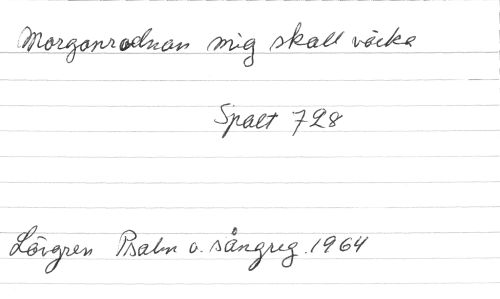 Morgonrodnan mig skall väcka
Spalt 728
Lövgren Psalm o. sångreg. 1964